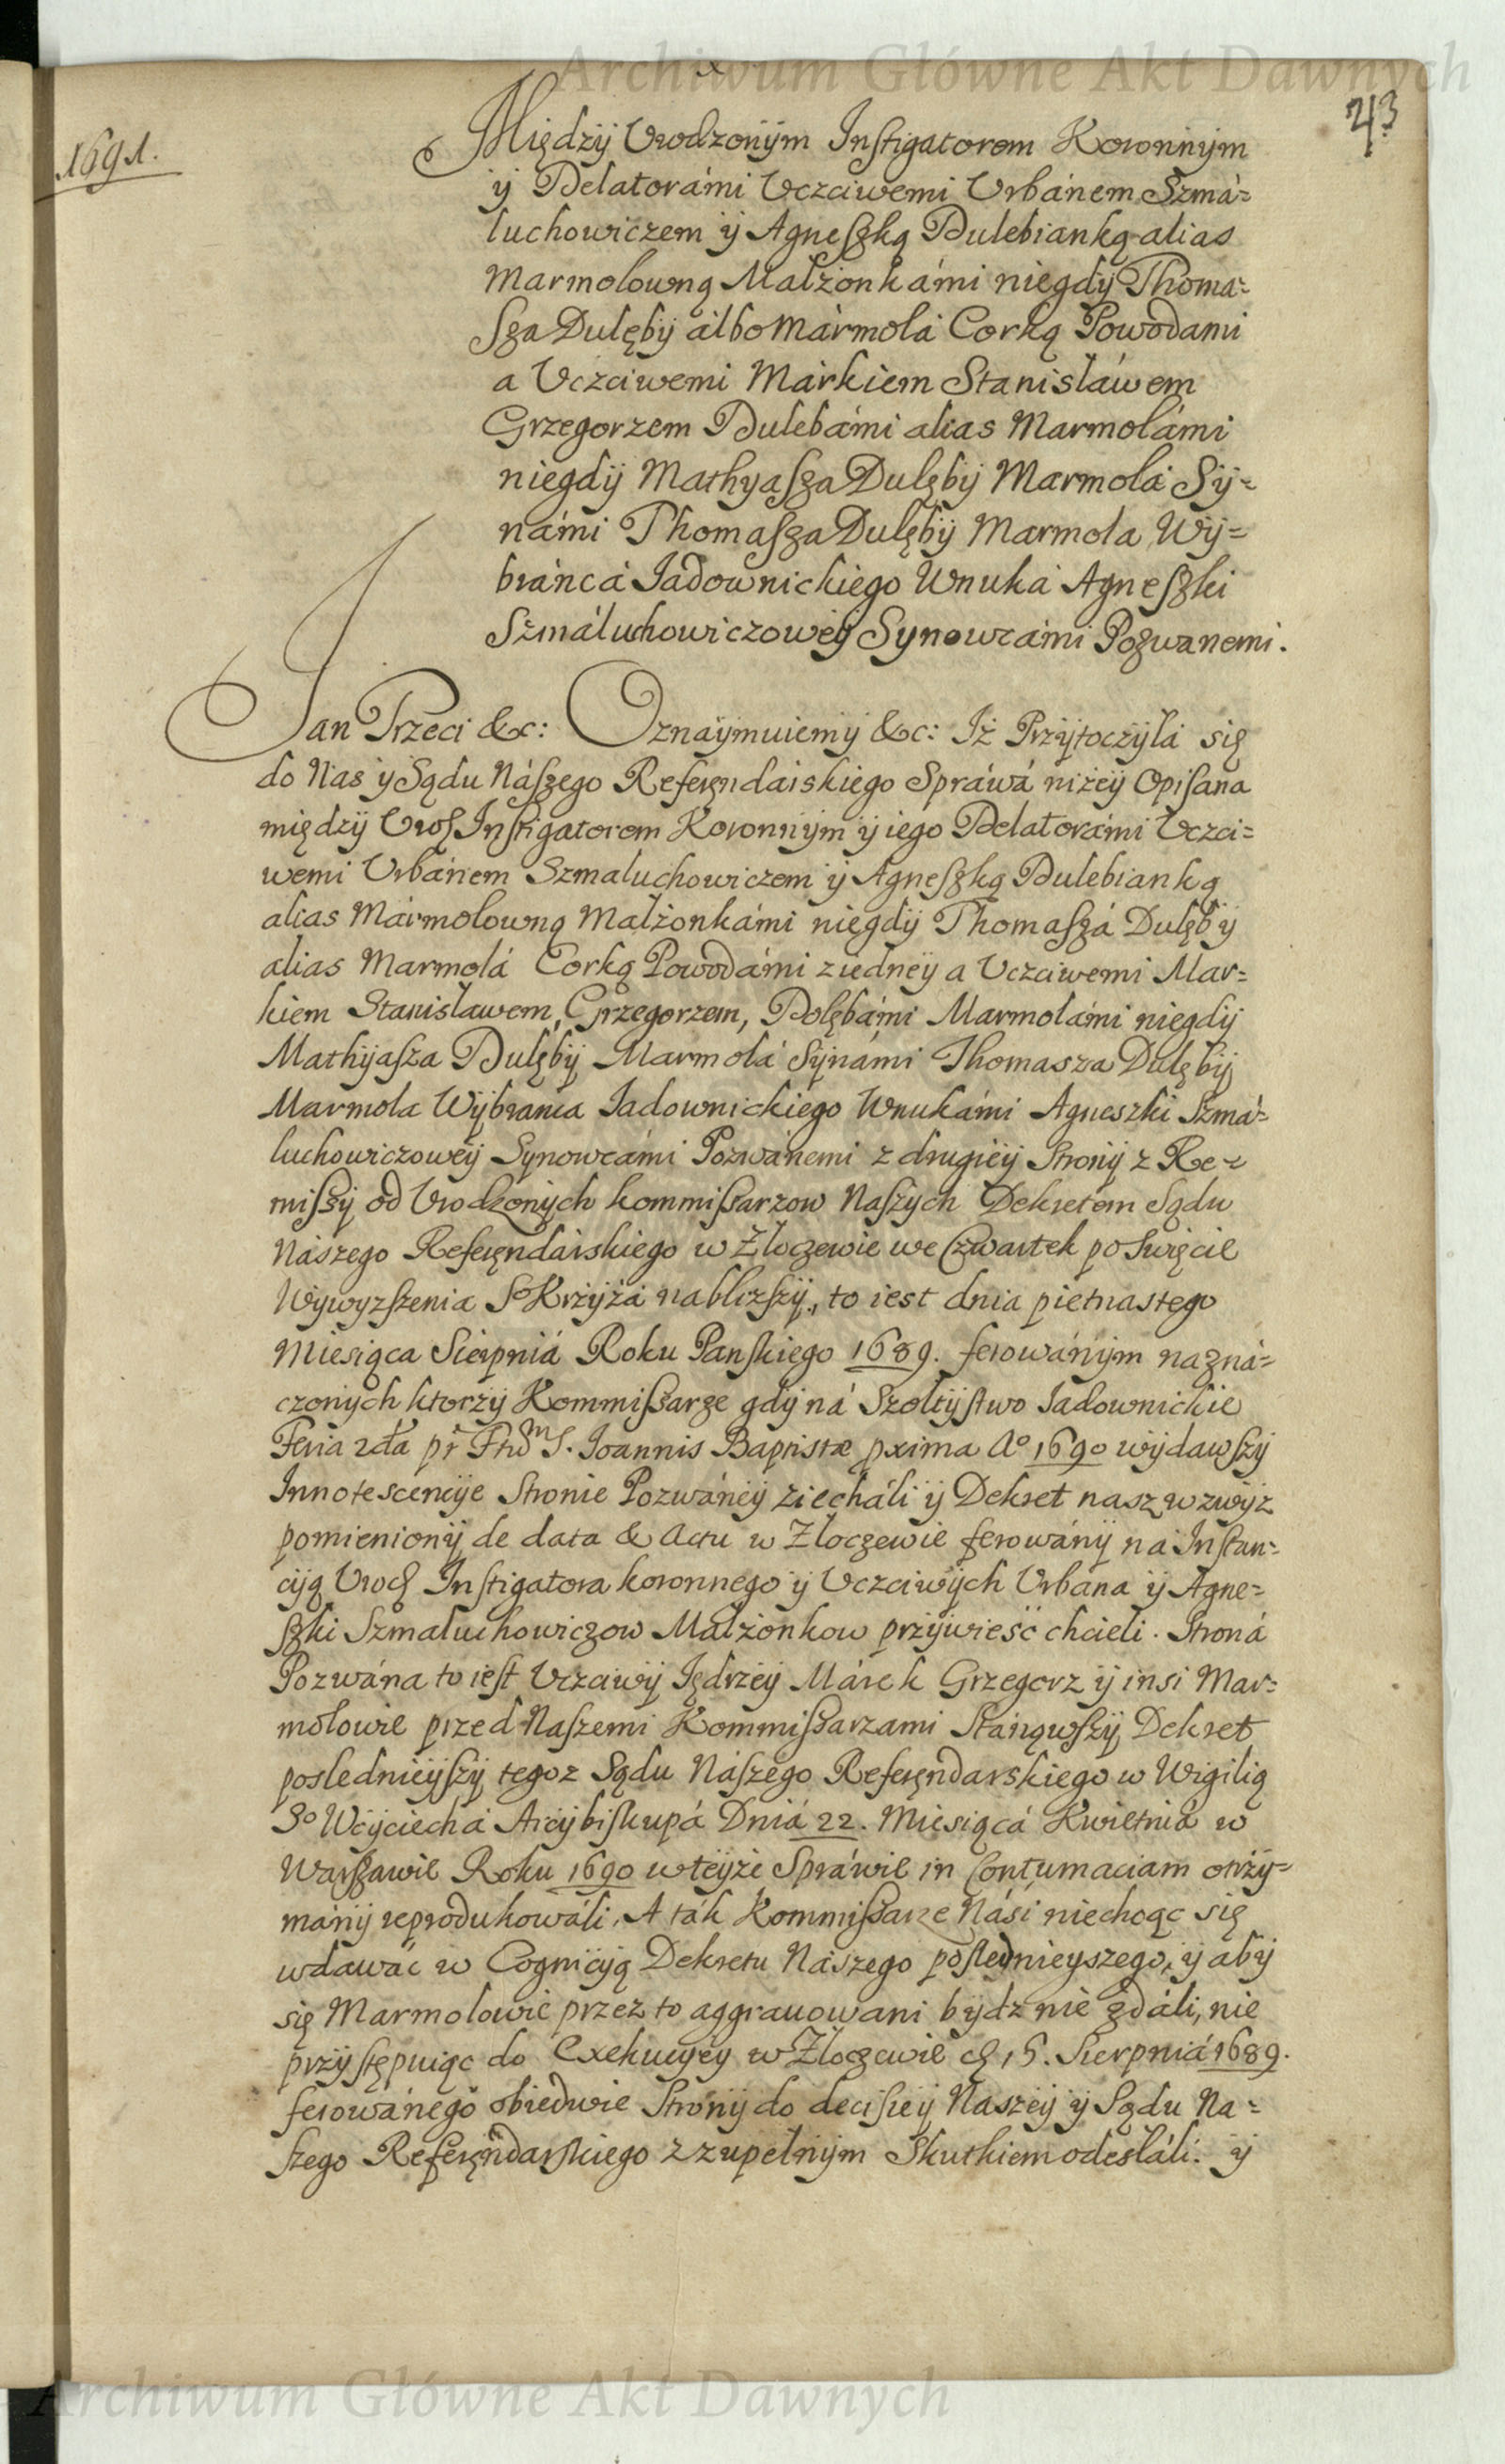 Archiwum Główne Akt Dawnych
43
1691.
Między Urodzonÿm Instigatorem Koronnÿm
ÿ Delatorámi Uczciwemi Urbánem Szmá=
luchowiczem ÿ Agneszką Dulebianką alias
Marmolowną Małżonkámi niegdÿ Thoma=
sza Dulębÿ álbo Mármolá Corką Powodami
a Uczciwemi Márkiem Stanisłáwem
Grzegorzem Dulebámi alias Marmolámi
niegdÿ Mathyasza Dulębÿ Marmolá Sÿ=
námi Thomasza Dulębÿ Marmola Wÿ=
bráncá Iadownickiego Wnuká Agneszki
Szmáluchowiczoweÿ Synowcámi Pozwanemi.
Jan Trzeci &c: Oznaÿmuiemÿ &c: Iż Przÿtoczÿłá się
do Nas ÿ Sądu Nászego Referęndarskiego Spráwá niżeÿ Opisana
międzÿ Urodz Instigatorem Koronnÿm ÿ iego Delatorámi Uczci=
wemi Urbánem Szmaluchowiczem ÿ Agneszką Dulebianką
alias Mármolowną Małżonkámi niegdÿ Thomaszá Dulębÿ
alias Marmolá Corką Powodámi z iedneÿ a Uczciwemi Mar=
kiem Stanisławem, Grzegorzem, Dolębámi Marmolámi niegdÿ
Mathÿasza Dulębÿ Marmolá Sÿnámi Thomasza Dulębÿ
Marmola Wÿbranca Iadownickiego Wnukámi Agneszki Szmá=
luchowiczoweÿ Synowcámi Pozwánemi z drugieÿ Stronÿ z Re=
missÿ od Urodzonÿch kommissarzow Naszÿch Dekretem Sądu
Nászego Referęndarskiego w Złoczewie we Czwartek po Swięcie
Wÿwyzszenia So Krzÿżá nablizszÿ, to iest dnia pietnastego
Miesiąca Sierpniá Roku Panskiego 1689. ferowánÿm nazná=
czonÿch ktorzÿ Kommissarze gdÿ ná Szołtÿstwo Iadownickie
Feria 2da pt Fndm S. Ioannis Baptistæ pxima Ao 1690 wÿdawszÿ
Innotescencÿe Stronie Pozwáneÿ ziecháli ÿ Dekret nasz wzwÿz
pomienionÿ de data & Actu w Złoczewie ferowánÿ ná Instan=
cÿą Urodz Instigatora koronnego ÿ Uczciwÿch Urbana ÿ Agne=
szki Szmaluchowiczow Małżonkow przÿwiesć chcieli. Stroná
Pozwána to iest Uczciwÿ Jędrzeÿ Márek Grzegorz ÿ insi Mar=
molowie przed Naszemi Kommissarzami Stánąwszÿ, Dekret
posledniejszÿ tegoz Sądu Nászego Referęndarskiego w Wigilią
So Woÿciechá Arcÿbiskupá Dniá 22. Miesiącá Kwietniá w
Warszawie Roku 1690 w teÿże Spráwie in Contumaciam otrzÿ=
mánÿ reprodukowáli. A ták Kommissarze Nási niechcąc się
wdawác w Cognicÿą Dekretu Nászego poslednieyszego, ÿ abÿ
się Marmolowie przez to aggrauowani bÿdz nie zdáli, nie
przÿstępuiąc do Exekucÿeÿ w Złoczewie d. 15. Sierpniá 1689.
ferowánego obiedwie Stronÿ do decisieÿ Naszeÿ ÿ Sądu Na=
szego Referęndarskiego z zupełnÿm Skutkiem odesłáli. ÿ
Archiwum Główne Akt Dawnych